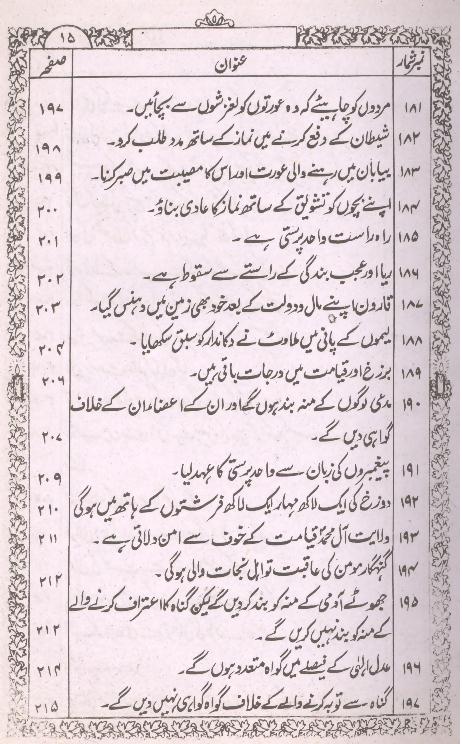 ۱۵
نمبر شمار عنوان صفحہ
۱۸۱ مردوں کو چاہیئے کہ وہ عورتوں کو لغزشوں سے بچائیں۔ ۱۹۷
۱۸۲ شیطان کے دفع کرنے میں نماز کے ساتھ مدد طلب کرو۔ ۱۹۸
۱۸۳ بیابان میں رہنے والی عورت اور اس کا مصیبت میں صبر کرنا۔ ۱۹۹
۱۸۴ اپنے بچوں کو تشویق کے ساتھ نماز کا عادی بناؤ۔ ۲۰۰
۱۸۵ راہ راست واحد پرستی ہے ۔ ۲۰۱
۱۸۶ ریا اور عجب بندگی کے راستے سے سقوط ہے۔ ۲۰۲
۱۸۷ قارون اپنے مال و دولت کے بعد خود بھی زمین میں دہنس گیا۔ ۲۰۳
۱۸۸ لیموں کے پانی میں ملاوٹ نے دکاندار کو سبق سکھایا ۔ ۲۰۴
۱۸۹ برزخ اور قیامت میں درجات باقی ہیں۔ ۲۰۶
۱۹۰ مدعی لوگوں کے منہ بند ہوں گے اور ان کے اعضاء ان کے خلاف
گواہی دیں گے۔ ۲۰۷
۱۹۱ پیغمبروں کی زبان سے واحد پرستی کا عہد لیا۔ ۲۰۹
۱۹۲ دوزخ کی ایک لاکھ مہار ایک لاکھ فرشتوں کے ہاتھ میں ہوگی ۲۱۰
۱۹۳ ولایت آل محمدؐ قیامت کے خوف سے امن دلاتی ہے ۔ ۲۱۱
۱۹۴ گنہگار مومن کی عاقبت تو اہل نجات والی ہوگی ۔ ۲۱۲
۱۹۵ جھوٹے آدمی کے منہ کو بند کر دیں گے لیکن گناہ کا اعتراف کرنے والے
کے منہ کو بند نہیں کریں گے ۔ ۲۱۲
۱۹۶ عدل الہٰی کے فیصلے میں گواہ متعدد ہوں گے۔ ۲۱۴
۱۹۷ گناہ سے توبہ کرنے والے کے خلاف گواہ گواہی نہیں دیں گے۔ ۲۱۵